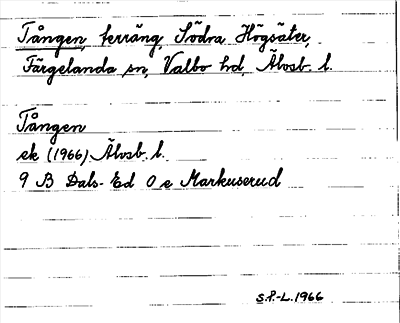 Tången, terräng, Södra Högsäter,
Färgelanda sn, Valbo hd, Älvsb. l.
Tången
ek (1966) Älvsb. l.
9 B Dals-Ed O e Markuserud
S.F.-L. 1966